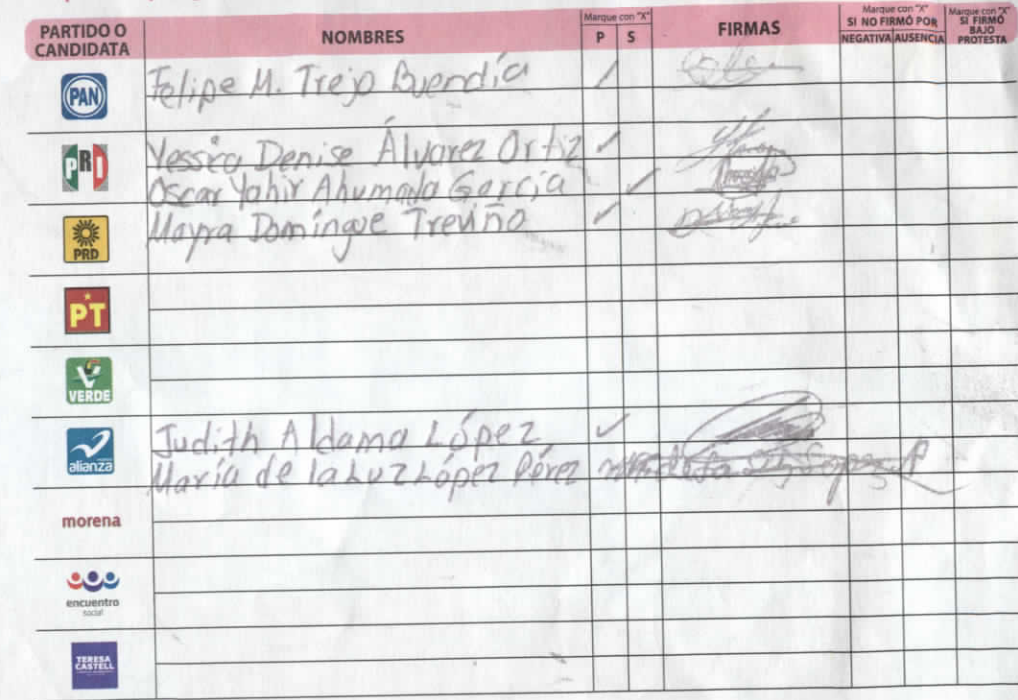 PARTIDO O CANDIDATA
NOMBRES
Marque con "X"
P S
FIRMAS
Marque con "X"
SI NO FIRMÓ POR
NEGATIVA AUSENCIA
Marque con "X"
SI FIRMÓ BAJO PROTESTA
PAN
Felipe M. Trejo Buendía
PRI
Yessica Denise Álvarez Ortiz
Oscar Yahir Ahumada García
PRD
Mayra Domíngue Treviño
PT
VERDE
alianza
Judith Aldama López
María de la Luz López Pérez
morena
encuentro
social
TERESA
CASTELL